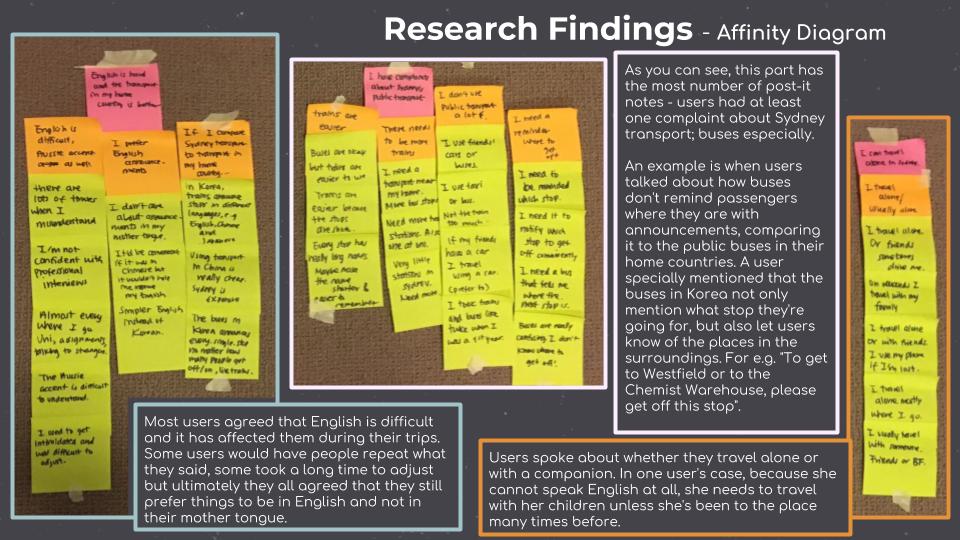 Research Findings - Affinity Diagram
English is hard
and the transport
in my home
country is better
English is
difficult,
Aussie accent
as well.
there are
lots of times
when I
misunderstand
I'm not
confident with
professional
interviews
Almost every
where I go
Uni, assignments,
talking to strangers.
The Aussie
accent is difficult
to understand.
I used to get
intimidated and
was difficult to
adjust.
I prefer
English
announce-
ments
I don't care
about announce-
ments in my
mother tongue.
It'd be convenient
if it was in
Chinese but
it wouldn't help
me improve
my English
Simpler English
instead of
Korean.
If I compare
Sydney transport
to transport in
my home
country...
in Korea,
trains announce
stops in different
languages, e.g
English, Chinese
and
Japanese
Using transport
in China is
really cheap.
Sydney is
expensive
The buses in
Korea announce
every single stop
no matter how
many people get
off/on, like trains.
I have complaints
about Sydney's
Public transport
trains are
easier
Buses are near
but trains are
easier to use
Trains are
easier because
the stops
are
Every stop has
really long names
Maybe make
the name
shorter &
easier to
remember
There needs
to be more
trains
I need a
transport near
my home.
More bus stops
Need more train
stations.
Very little
stations in
Sydney.
Need more
I don't use
Public transport
a lot
I use friends'
cars or
buses.
I use taxi
or bus.
Not the train
too much
If my friends
have a car
I travel
using a car.
(prefer to)
I took trains
and buses
when I
was a 1st year.
I need a
reminder
where to
get
off
I need to
be reminded
which stop.
I need it to
notify which
stop to get
off conveniently
I need a bus
that tells me
where the
next stop is.
Buses are really
confusing I don't
know where to
get off.
As you can see, this part has
the most number of post-it
notes - users had at least
one complaint about Sydney
transport; buses especially.
An example is when users
talked about how buses
don't remind passengers
where they are with
announcements, comparing
it to the public buses in their
home countries. A user
specially mentioned that the
buses in Korea not only
mention what stop they're
going for, but also let users
know of the places in the
surroundings. For e.g. "To get
to Westfield or to the
Chemist Warehouse, please
get off this stop".
I can travel
alone in Sydney.
I travel
alone/
usually alone
I travel alone.
Or friends
sometimes
drive me.
On weekends I
travel with my
family
I travel alone
or with friends.
I use my phone
if I'm lost.
I travel
alone mostly
where I go.
I usually travel
with someone.
Friends or BF.
Most users agreed that English is difficult
and it has affected them during their trips.
Some users would have people repeat what
they said, some took a long time to adjust
but ultimately they all agreed that they still
prefer things to be in English and not in
their mother tongue.
Users spoke about whether they travel alone or
with a companion. In one user's case, because she
cannot speak English at all, she needs to travel
with her children unless she's been to the place
many times before.